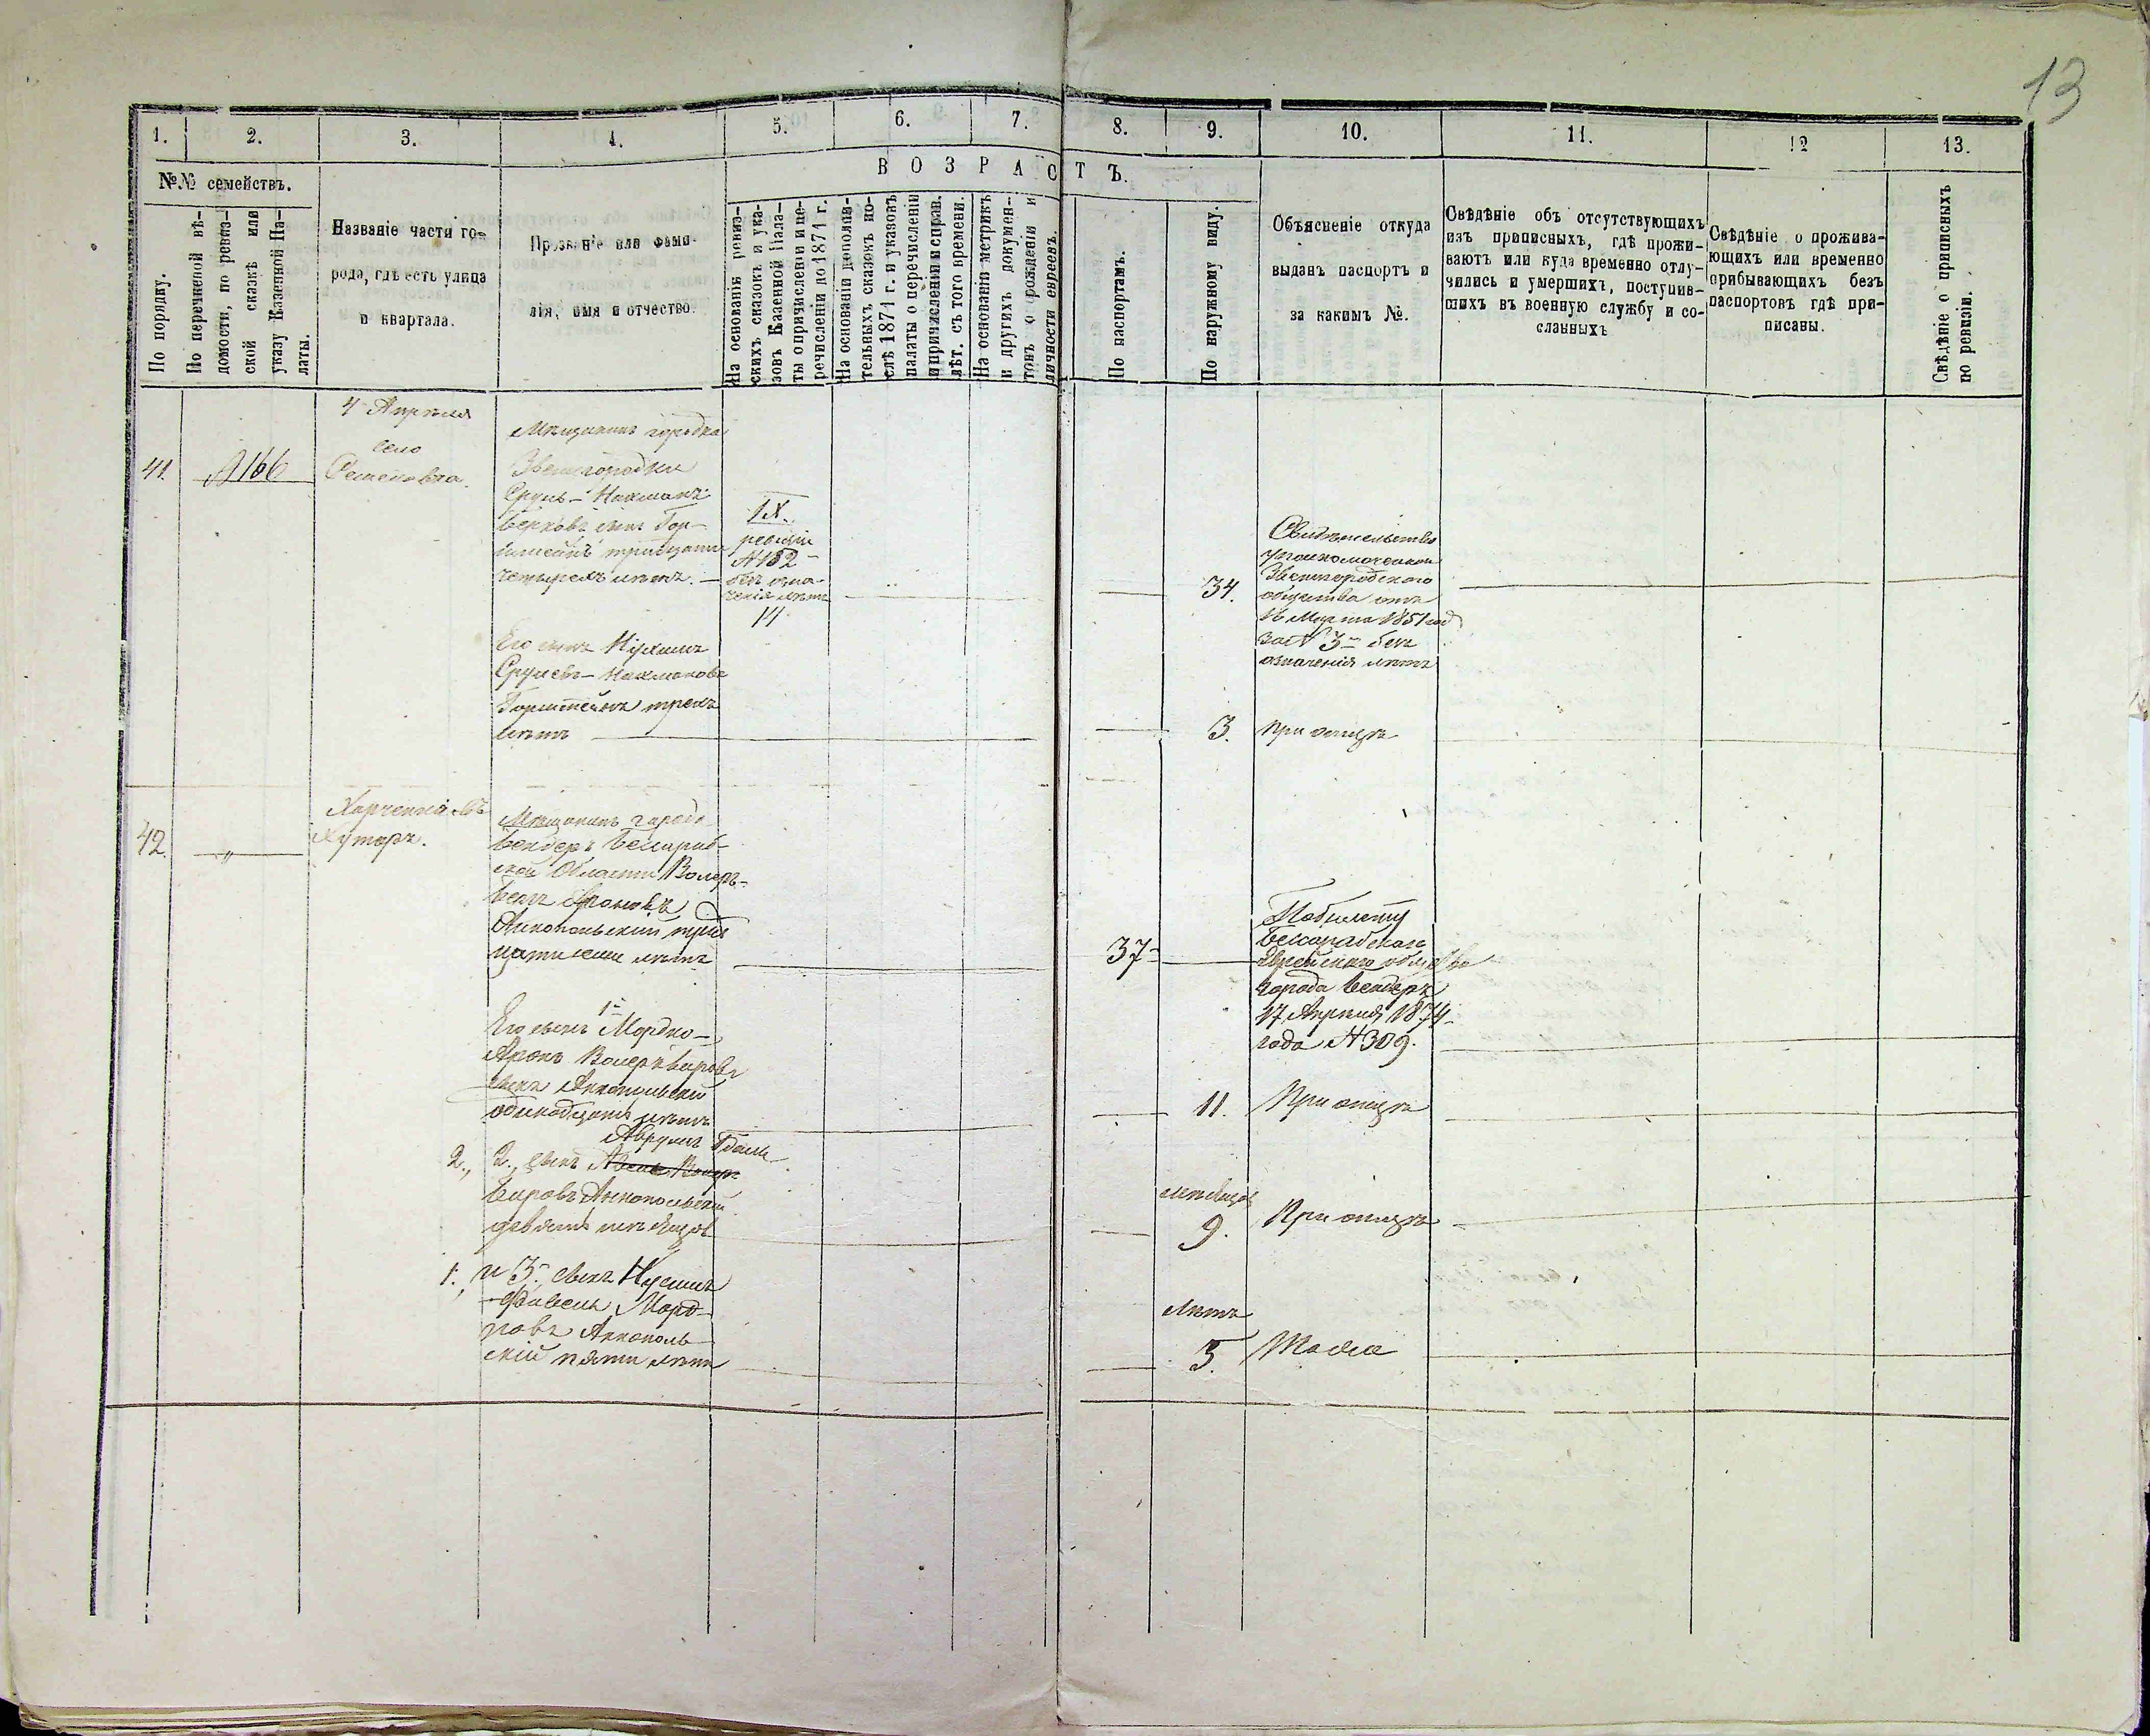 13
1. 2. 3. 4. 5. 6. 7. 8. 9. 10. 11. 12 13.
№№ семействъ.
По порядку.
По перечневой вѣ-
домости, по ревиз-
ской сказкѣ или
указу Казенной Па-
латы.
Названіе части го-
рода, гдѣ есть улица
и квартала.
Прозваніе или фами-
лія, имя и отчество.
ВОЗРАСТЪ.
На основаніи ревиз-
скихъ сказокъ и ука-
зовъ Казенной Пала-
ты о причисленіи и пе-
речисленіи до 1871 г.
На основаніи дополни-
тельныхъ сказокъ по-
слѣ 1871 г. и указовъ
палаты о перечисленіи
и причисленіи и справ.
лѣт. съ того времени.
На основаніи метрикъ
и другихъ докумен-
товъ о рожденіи и
личности евреевъ.
По паспортамъ.
По наружному виду.
Объясненіе откуда
выданъ паспортъ и
за какимъ №.
Свѣдѣніе объ отсутствующихъ
изъ приписныхъ, гдѣ прожи-
ваютъ или куда временно отлу-
чились и умершихъ, поступив-
шихъ въ военную службу и со-
сланныхъ
Свѣдѣніе о прожива-
ющихъ или временно
прибывающихъ безъ
паспортовъ гдѣ при-
писаны.
Свѣдѣніе о приписныхъ
по ревизіи.
4 Апрѣля
село
Семеновка.
41.
№166
Мѣщанинъ городка
Звенигородки
Сруль-Нахманъ
Берковъ сынъ Гор-
штейнъ тридцати
четырехъ лѣтъ.
IX.
ревизіи
№182
безъ озна-
ченія лѣтъ
14
34.
Свидѣтельство
уполномоченнаго
Звенигородскаго
общества отъ
16 Марта 1851 год
за № 3 безъ
означенія лѣтъ
Его сынъ Нухимъ
Срулевъ-Нахмановъ
Горштейнъ трехъ
лѣтъ
3. при отцѣ
42. "
Харченковъ
Хуторъ.
Мѣщанинъ города
Бендеръ Бессараб-
ской Области Волеръ-
Беръ
Аннопольскій трид
цати семи лѣтъ
37
По билету
Бессарабскаго
Еврейскаго общества
города Бендеръ
17 Апрѣля 1874
года №309.
1
Его сынъ Мордко-
Аронъ Волеръ Беровъ
сынъ Аннопольскій
одинадцати лѣтъ
11. При отцѣ
Аврумъ Гдаль
2., 2., сынъ Волеръ
Беровъ Аннопольскій
девяти мѣсяцовъ
мѣсяцовъ
9. При отцѣ
1., и 3. сынъ Нусимъ
Файвель Морд-
ковъ Аннополь-
скій пяти лѣтъ
лѣтъ
5. Тоже